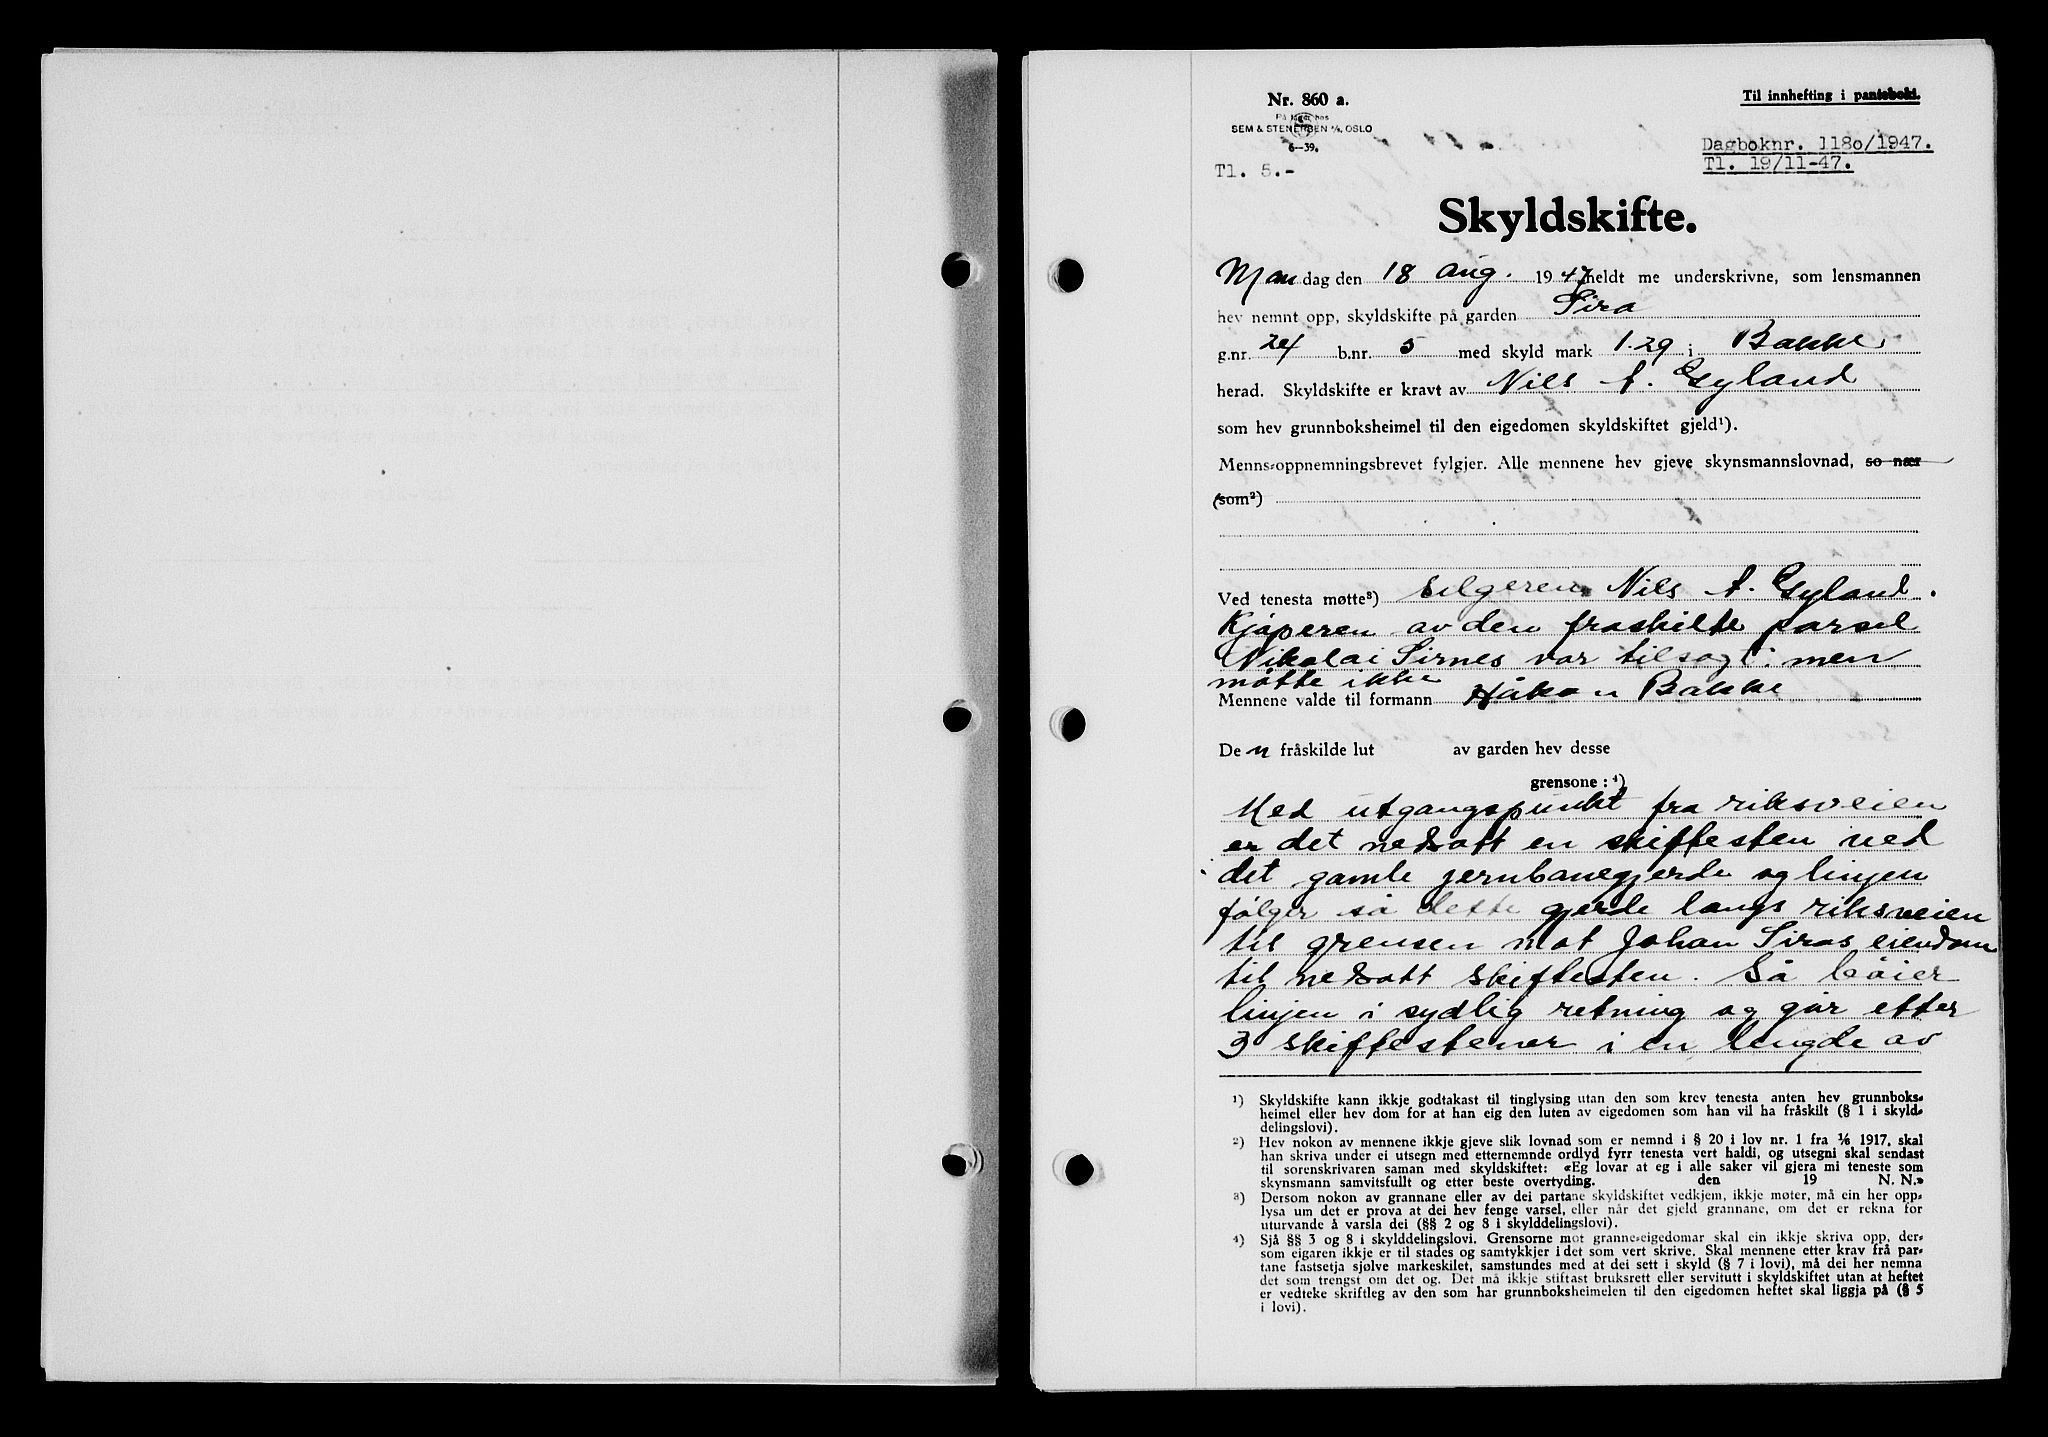 Nr. 860 a.
På lager hos
SEM & STENERSEN A/S, OSLO
6—39.
Til innhefting i pantebok.
Dagboknr. 1180/1947.
Tl. 19/11-47.
Tl. 5.-
Skyldskifte.
Mandag den 18 aug. 1947 heldt me underskrivne, som lensmannen
hev nemnt opp, skyldskifte på garden Sira
g.nr. 24 b.nr. 5 med skyld mark 1.29 i Bakke
herad. Skyldskifte er kravt av Nils A. Gyland
som hev grunnboksheimel til den eigedomen skyldskiftet gjeld¹).
Menns-oppnemningsbrevet fylgjer. Alle mennene hev gjeve skynsmannslovnad, so nær
(som²)
Ved tenesta møtte³) selgeren Nils A. Gyland.
Kjøperen av den fraskilte parsel
Nikolai Sirnes var tilsagt men
møtte ikke
Mennene valde til formann Håkon Bakke
Den fråskilde lut av garden hev desse
grensone: ⁴)
Med utgangspunkt fra riksveien
er det nedsatt en skiftesten ved
det gamle jernbanegjerde og linjen
følger så dette gjerde langs riksveien
til grensen mot Johan Siras eiendom
til nedsatt skiftesten. Så bøier
linjen i sydlig retning og går etter
3 skiftestener i en lengde av
¹) Skyldskifte kann ikkje godtakast til tinglysing utan den som krev tenesta anten hev grunnboks-
heimel eller hev dom for at han eig den luten av eigedomen som han vil ha fråskilt (§ 1 i skyld-
delingslovi).
²) Hev nokon av mennene ikkje gjeve slik lovnad som er nemnd i § 20 i lov nr. 1 fra ⅙ 1917, skal
han skriva under ei utsegn med etternemnde ordlyd fyrr tenesta vert haldi, og utsegni skal sendast
til sorenskrivaren saman med skyldskiftet: «Eg lovar at eg i alle saker vil gjera mi teneste som
skynsmann samvitsfullt og etter beste overtyding. den 19 N. N.»
³) Dersom nokon av grannane eller av dei partane skyldskiftet vedkjem, ikkje møter, må ein her opp-
lysa um det er prova at dei hev fenge varsel, eller når det gjeld grannane, om det er rekna for
uturvande å varsla dei (§§ 2 og 8 i skylddelingslovi).
⁴) Sjå §§ 3 og 8 i skylddelingslovi. Grensorne mot granne-eigedomar skal ein ikkje skriva opp, der-
som eigaren ikkje er til stades og samtykkjer i det som vert skrive. Skal mennene etter krav frå par-
tane fastsetja sjølve markeskilet, samstundes med at dei sett i skyld (§ 7 i lovi), må dei her nemna
det som trengst om det og. Det må ikkje stiftast bruksrett eller servitutt i skyldskiftet utan at heftet
er vedteke skriftleg av den som har grunnboksheimelen til den eigedomen heftet skal liggja på (§ 5
i lovi).